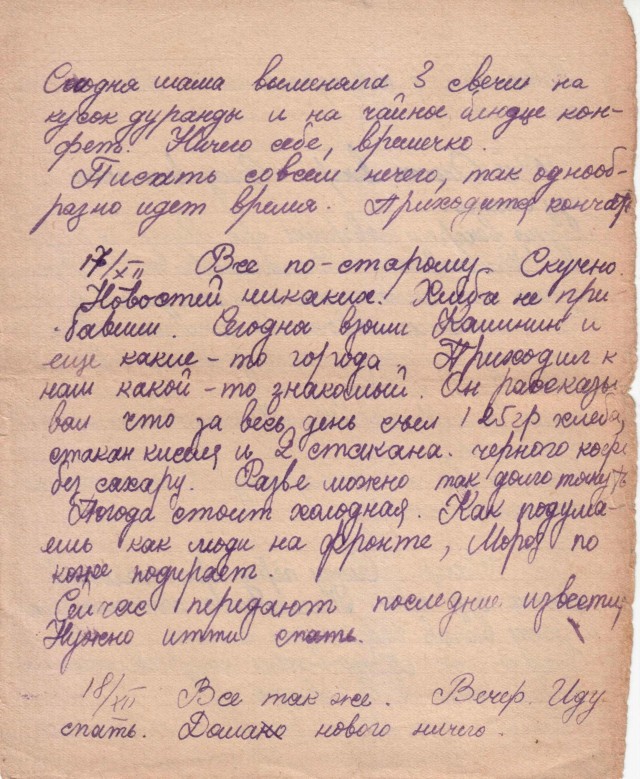 Сегодня мама выменяла 3 свечи на
кусок дуранды и на чайное блюдце кон-
фет. Ничего себе, времечко.
Писать совсем нечего, так однооб-
разно идет время. Приходится кончать
17/XII Все по-старому. Скучно.
Новостей никаких. Хлеба не при-
бавили. Сегодня взяли Калинин и
еще какие-то города. Приходил к
нам какой-то знакомый. Он рассказы
вал что за весь день съел 125 гр хлеба,
стакан киселя и 2 стакана черного кофе
без сахару. Разве можно так долго тянуть
Погода стоит холодная. Как подума-
ешь как люди на фронте, Мороз по
коже подирает.
Сейчас передают последние известия,
Нужно итти спать.
18/XII Все так же. Вечер. Иду
спать. Дома нового ничего.